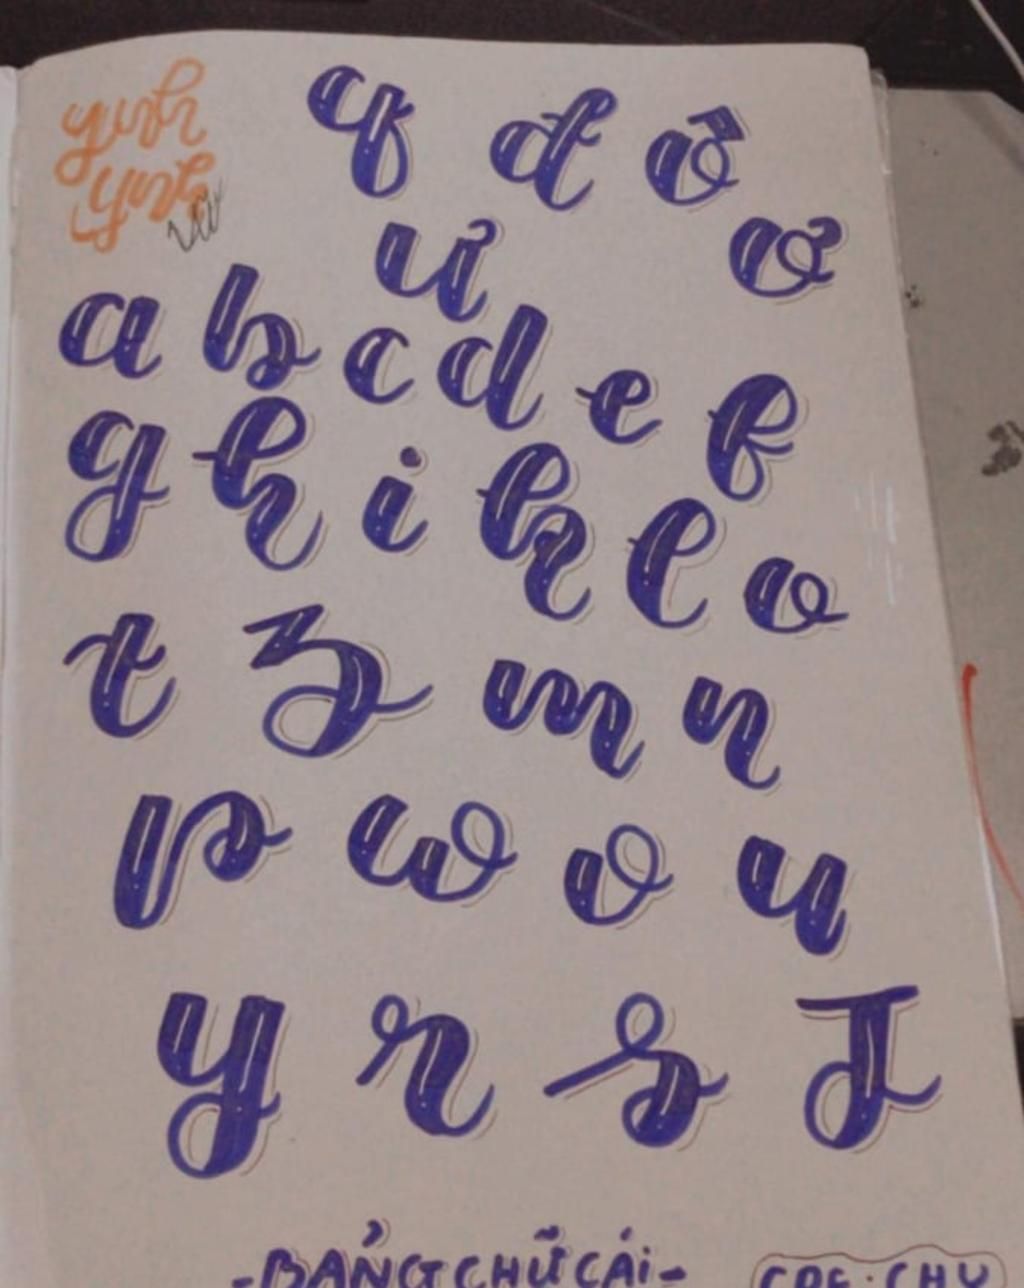 yunh
q đ ô
ư ơ
a b c d e f
g h i k l o
t z m n
p w v u
y r s J
-BẢNG CHỮ CÁI-
CRE: CHU